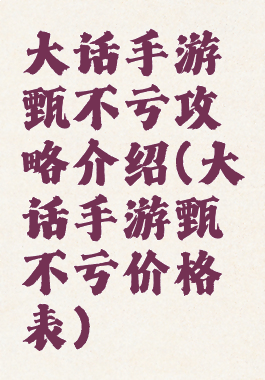 大话手游
甄不亏攻
略介绍(大
话手游甄
不亏价格
表)